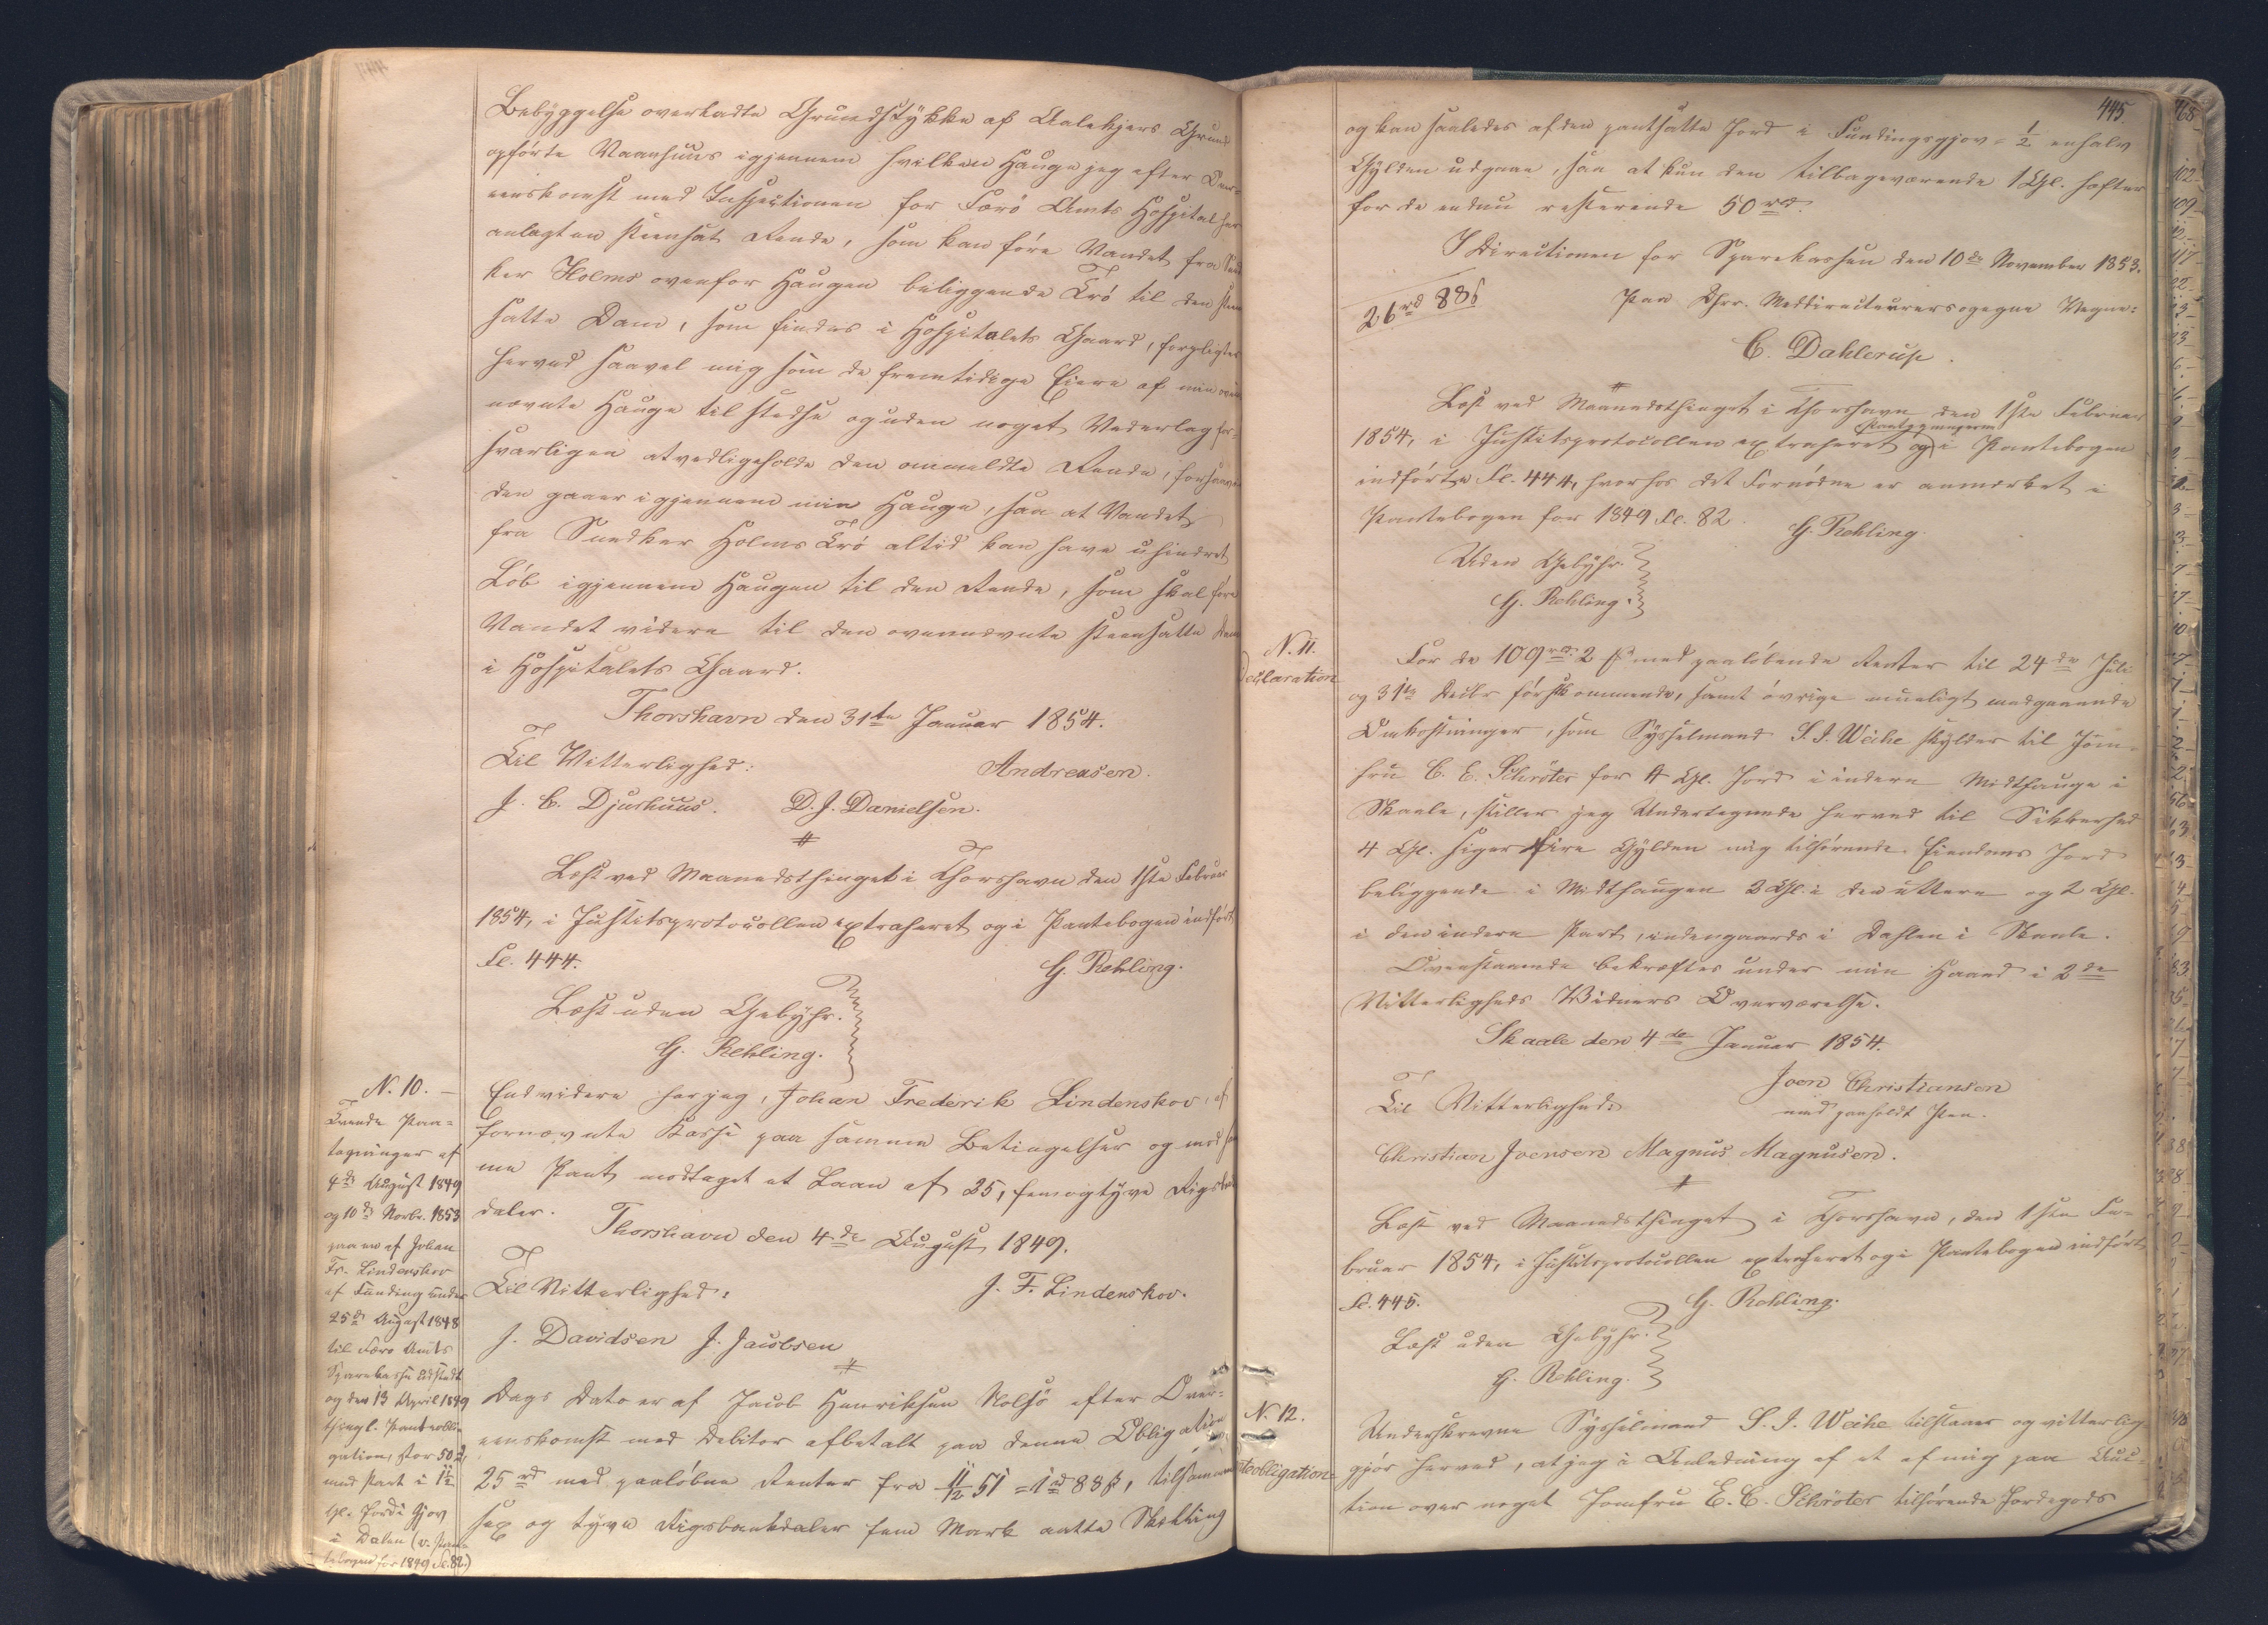 Bebyggelse overladte Grundstykke af Aalekjers Grund
opförte Vaanhuus igjennem hvilken Hauge jeg efter Over-
eenskomst med Inspectionen for Færö Amts Hospital har
anlagt en steensat Rende, som kan före Vandet fra Sned-
ker Holms ovenfor Haugen beliggende Brö til den steen
satte Dam, som findes i Hospitalets Gaard, forpligter
herved saavel mig som de fremtidige Eiere af min oven
nævnte Hauge til stedse og uden noget Vederlag for-
svarligen at vedligeholde den ommeldte Rende, forsaavidt
den gaaer igjennem min Hauge, saa at Vandet
fra Snedker Holms Brö altid kan have uhindret
Löb igjennem Haugen til den Rende, som skal före
Vandet videre til den ovennævnte steensatte Dam
i Hospitalets Gaard.
Thorshavn den 31te Januar 1854.
Til Vitterlighed:
Andreasen.
J. C. Djurhuus. D. J. Danielsen.
Læst ved Maanedsthinget i Thorshavn den 1ste Februar
1854, i Justitsprotocollen extraheret og i Pantebogen indfört
Fl. 444.
G. Rehling.
Læst uden Gebyhr.
G. Rehling.
N. 10.
Tvende Paa-
tegninger af
4de August 1849
og 10de Novbr. 1853
paa en af Johan
Fr. Lindenskov
af Funding under
25de August 1848
til Færö Amts
Sparekasse udstedt
og den 13 April 1849
thingl. Pantobli-
gation, stor 50 rd,
med Pant i 1½
Gl. Jord i Gjov
i Dalen (v. Pante-
bogen for 1849 Fl. 82.)
Endvidere har jeg, Johan Frederik Lindenskov, af
fornævnte Kasse paa samme Betingelser og med sam
me Pant modtaget et Laan af 25, femogtyve Rigsbank
daler.
Thorshavn den 4de August 1849.
Til Vitterlighed:
J. F. Lindenskov.
J. Davidsen J. Jacobsen
Dags Dato er af Jacob Henriksen Nolsö efter Over-
eenskomst med Debitor afbetalt paa denne Obligation
25 rd med paalöbne Renter fra 11/12 51 = 1 rd 88 ß, tilsammen
sex og tyve Rigsbankdaler fem Mark aatte Skilling
445.
og kan saaledes af den pantsatte Jord i Fundingsgjov = ½ enhalv
Gylden udgaae, saa at kun den tilbageværende 1 Gl. hæfter
for de endnu resterende 50 rd.
I Directionen for Sparekassen den 10de November 1853.
26 rd 88 ß
Paa Hrr. Meddirecteurers ogegne Vegne:
C. Dahlerup.
Læst ved Maanedsthinget i Thorshavn den 1ste Februar
1854, i Justitsprotocollen extraheret og i Pantebogen
indfört Fl. 444, hvorhos det Fornödne er anmærket i
Pantebogen for 1849 Fl. 82.
G. Rehling.
Uden Gebyhr.
G. Rehling.
N. 11.
Declaration
For de 109 rd. 2 ß med paalöbende Renter til 24de Juli
og 31te Decbr förstkommende, samt övrige mueligt medgaaende
Omkostninger, som Sysselmand S. J. Weihe skylder til Jom-
fru C. E. Schröter for 4 Gl. Jord i indere Midthauge i
Skaale, stiller jeg Undertegnede herved til Sikkerhed
4 Gl. siger fire Gylden mig tilhörende Eiendoms Jord
beliggende i Midthaugen 2 Gl. i den uttere og 2 Gl.
i den indere Part, indengaards i Dahlen i Skaale.
Ovenstaaende bekræftes under min Haand i 2de
Vitterligheds Vidners Overværelse.
Skaale den 4de Januar 1854.
Joen Christiansen
med paaholdt Pen.
Til Vitterlighed:
Christian Joensen Magnus Magnusen.
Læst ved Maanedsthinget i Thorshavn, den 1ste Fe-
bruar 1854, i Justitsprotocollen extraheret og i Pantebogen indfört
Fl. 445.
G. Rehling.
Læst uden Gebyhr.
G. Rehling.
N. 12.
Underskrevne Sysselmand S. J. Weihe tilstaaer og vitterlig
gjör herved, at jeg i Anledning af et af mig paa Auc-
tion over noget Jomfru E. C. Schröter tilhörende Jordegods